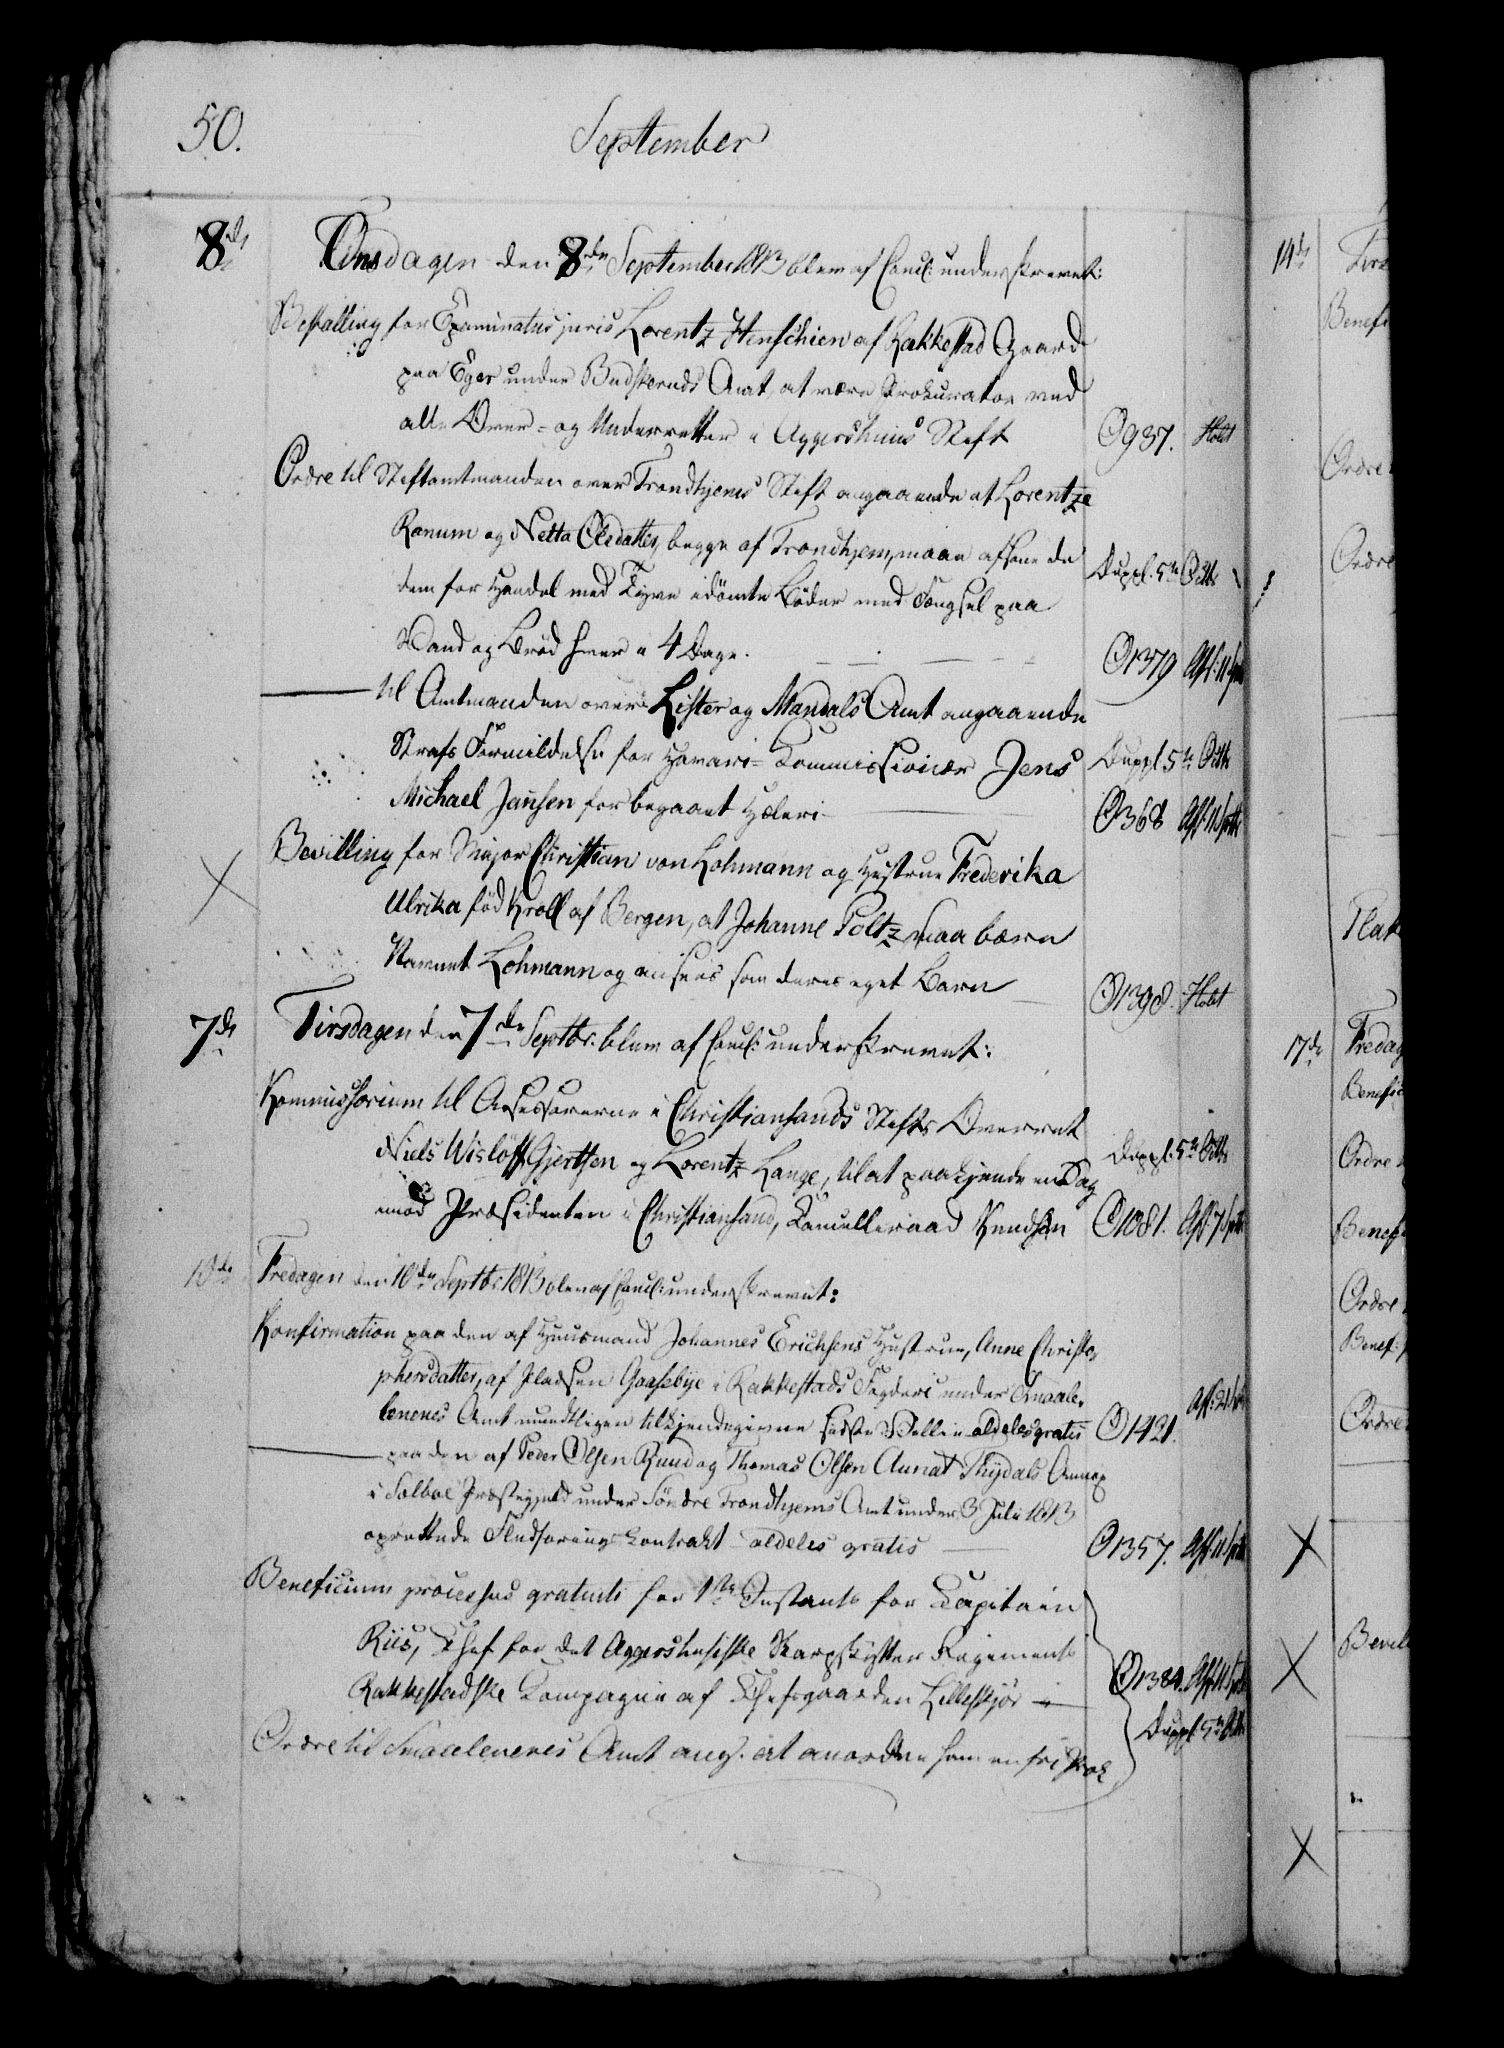 50.
September
8de Onsdagen den 8de September 1813 blew af Canc: underskrevet:
Bestalling for Examinatus juris Lorentz Henschien af Rakkestad Gaard
paa Eger under Budskeruds Amt, at være Prokurator ved
alle Over- og Underretter i Aggershuus Stift
O 937. Holst
Ordre til Stiftamtmanden over Trondhjems Stift angaaende at Lorentze
Ranum og Netta Olsdatter, begge af Trondhjem, maae afsone de
dem for Handel med Tyve idömte Böder med Fængsel paa
Vand og Bröd hver i 4 Dage.
Duppl. 5te
O 1379
til Amtmanden over Lister og Mandals Amt angaaende
Strafs Formildelse for Havari-Kommissionær Jens
Michael Jansen for begaaet Hæleri
Duppl 5te
O 368
Bevilling for Major Christian von Lohmann og Hustrue Frederika
Ulrika föd Kroll af Bergen, at Johanne Poltz maa bære
Navnet Lohmann og ansees som deres eget Barn
O 1398. Holst
7de Tirsdagen den 7de Septbr. blew af Canc: underskrevet:
Kommissorium til Assessorerne i Christiansands Stifts Overret
Niels Wislöff Gjertsen og Lorentz Lange, til at paakjende en Sag
mod Præsidenten i Christiansand, Kancelleraad Knudsen
Duppl. 5te
O 1081.
10de Fredagen den 10de Septbr 1813 blew af Canc: underskrevet:
Konfirmation paa den af Huusmand Johannes Erichsens Hustrue, Anne Christo-
phersdatter, af Pladsen Gaasebye i Rakkestads Fogderi under Smaale-
lenenes Amt mundtligen tilkjendegivne sidste Villie aldeles gratis
O 1421.
paa den af Peder Olsen Ruud og Thomas Olsen Aunat Thydals Annex
i Selboe Præstegjeld under Söndre Trondhjems Amt under 3 Juli 1813
oprettede Fledförings Kontrakt aldeles gratis
O 1357.
Beneficium processus gratuiti for 1ste Instants for Kapitain
Riis, Chef for det Aggershusiske Skarpskytter Regiments
Rakkestadske Compagnie af Chefsgaarden Lilleskjör
O 1384.
Duppl. 5te
Ordre til Smaalenenes Amt ang. at anordne ham en fri Prok
14de
Ordre
Ordre
Plak
17de Fredag
Ordre
Ordre
Ordre